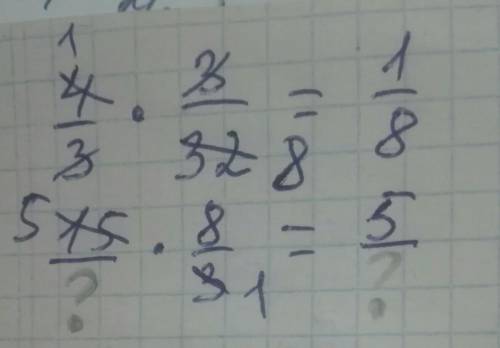 1
4/3 · 3/32 8 = 1/8
5 15/? · 8/3 1 = 5/?